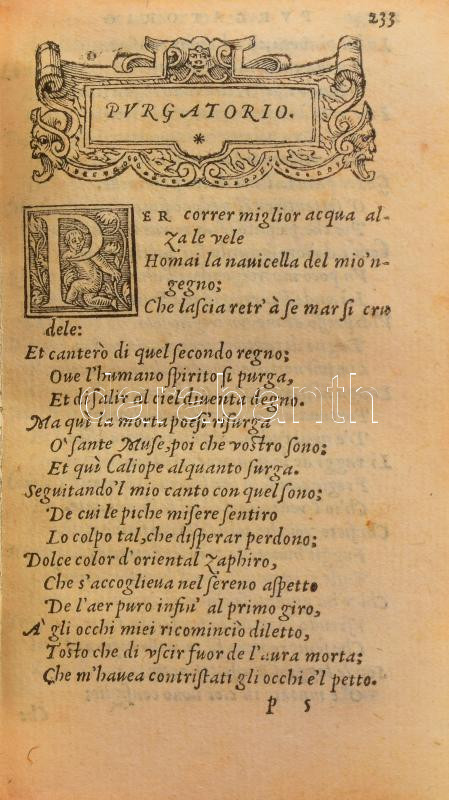 233
PVRGATORIO.
*
PER correr miglior acqua al-
za le vele
Homai la nauicella del mio'n-
gegno;
Che lascia retr' à se mar si cru
dele:
Et canterò di quel secondo regno;
Oue l'humano spirito si purga,
Et di salir al ciel diuenta degno.
Ma qui la morta poesi' risurga
O' sante Muse, poi che vostro sono;
Et quì Caliope alquanto surga.
Seguitando'l mio canto con quel sono;
De cui le piche misere sentiro
Lo colpo tal, che disperar perdono;
Dolce color d'oriental Zaphiro,
Che s'accoglieua nel sereno aspetto
De l'aer puro infin' al primo giro,
A' gli occhi miei ricominciò diletto,
Tosto che di vscir fuor de l'aura morta;
Che m'hauea contristati gli occhi e'l petto.
P 5
darabanth